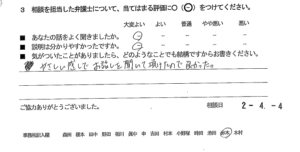 3 相談を担当した弁護士について、当てはまる評価に○(㊀)をつけてください。
大変よい よい 普通 やや悪い 悪い
■ あなたの話をよく聞きましたか。
■ 説明は分かりやすかったですか。
■ 気がついたことがありましたら、どのようなことでも結構ですからお書きください。
やさしい感じで お話しを聞いて頂けたので良かった。
ご協力ありがとうございました。 相談日 2-.4.-4
事務局記入欄 森田 橋本 田中